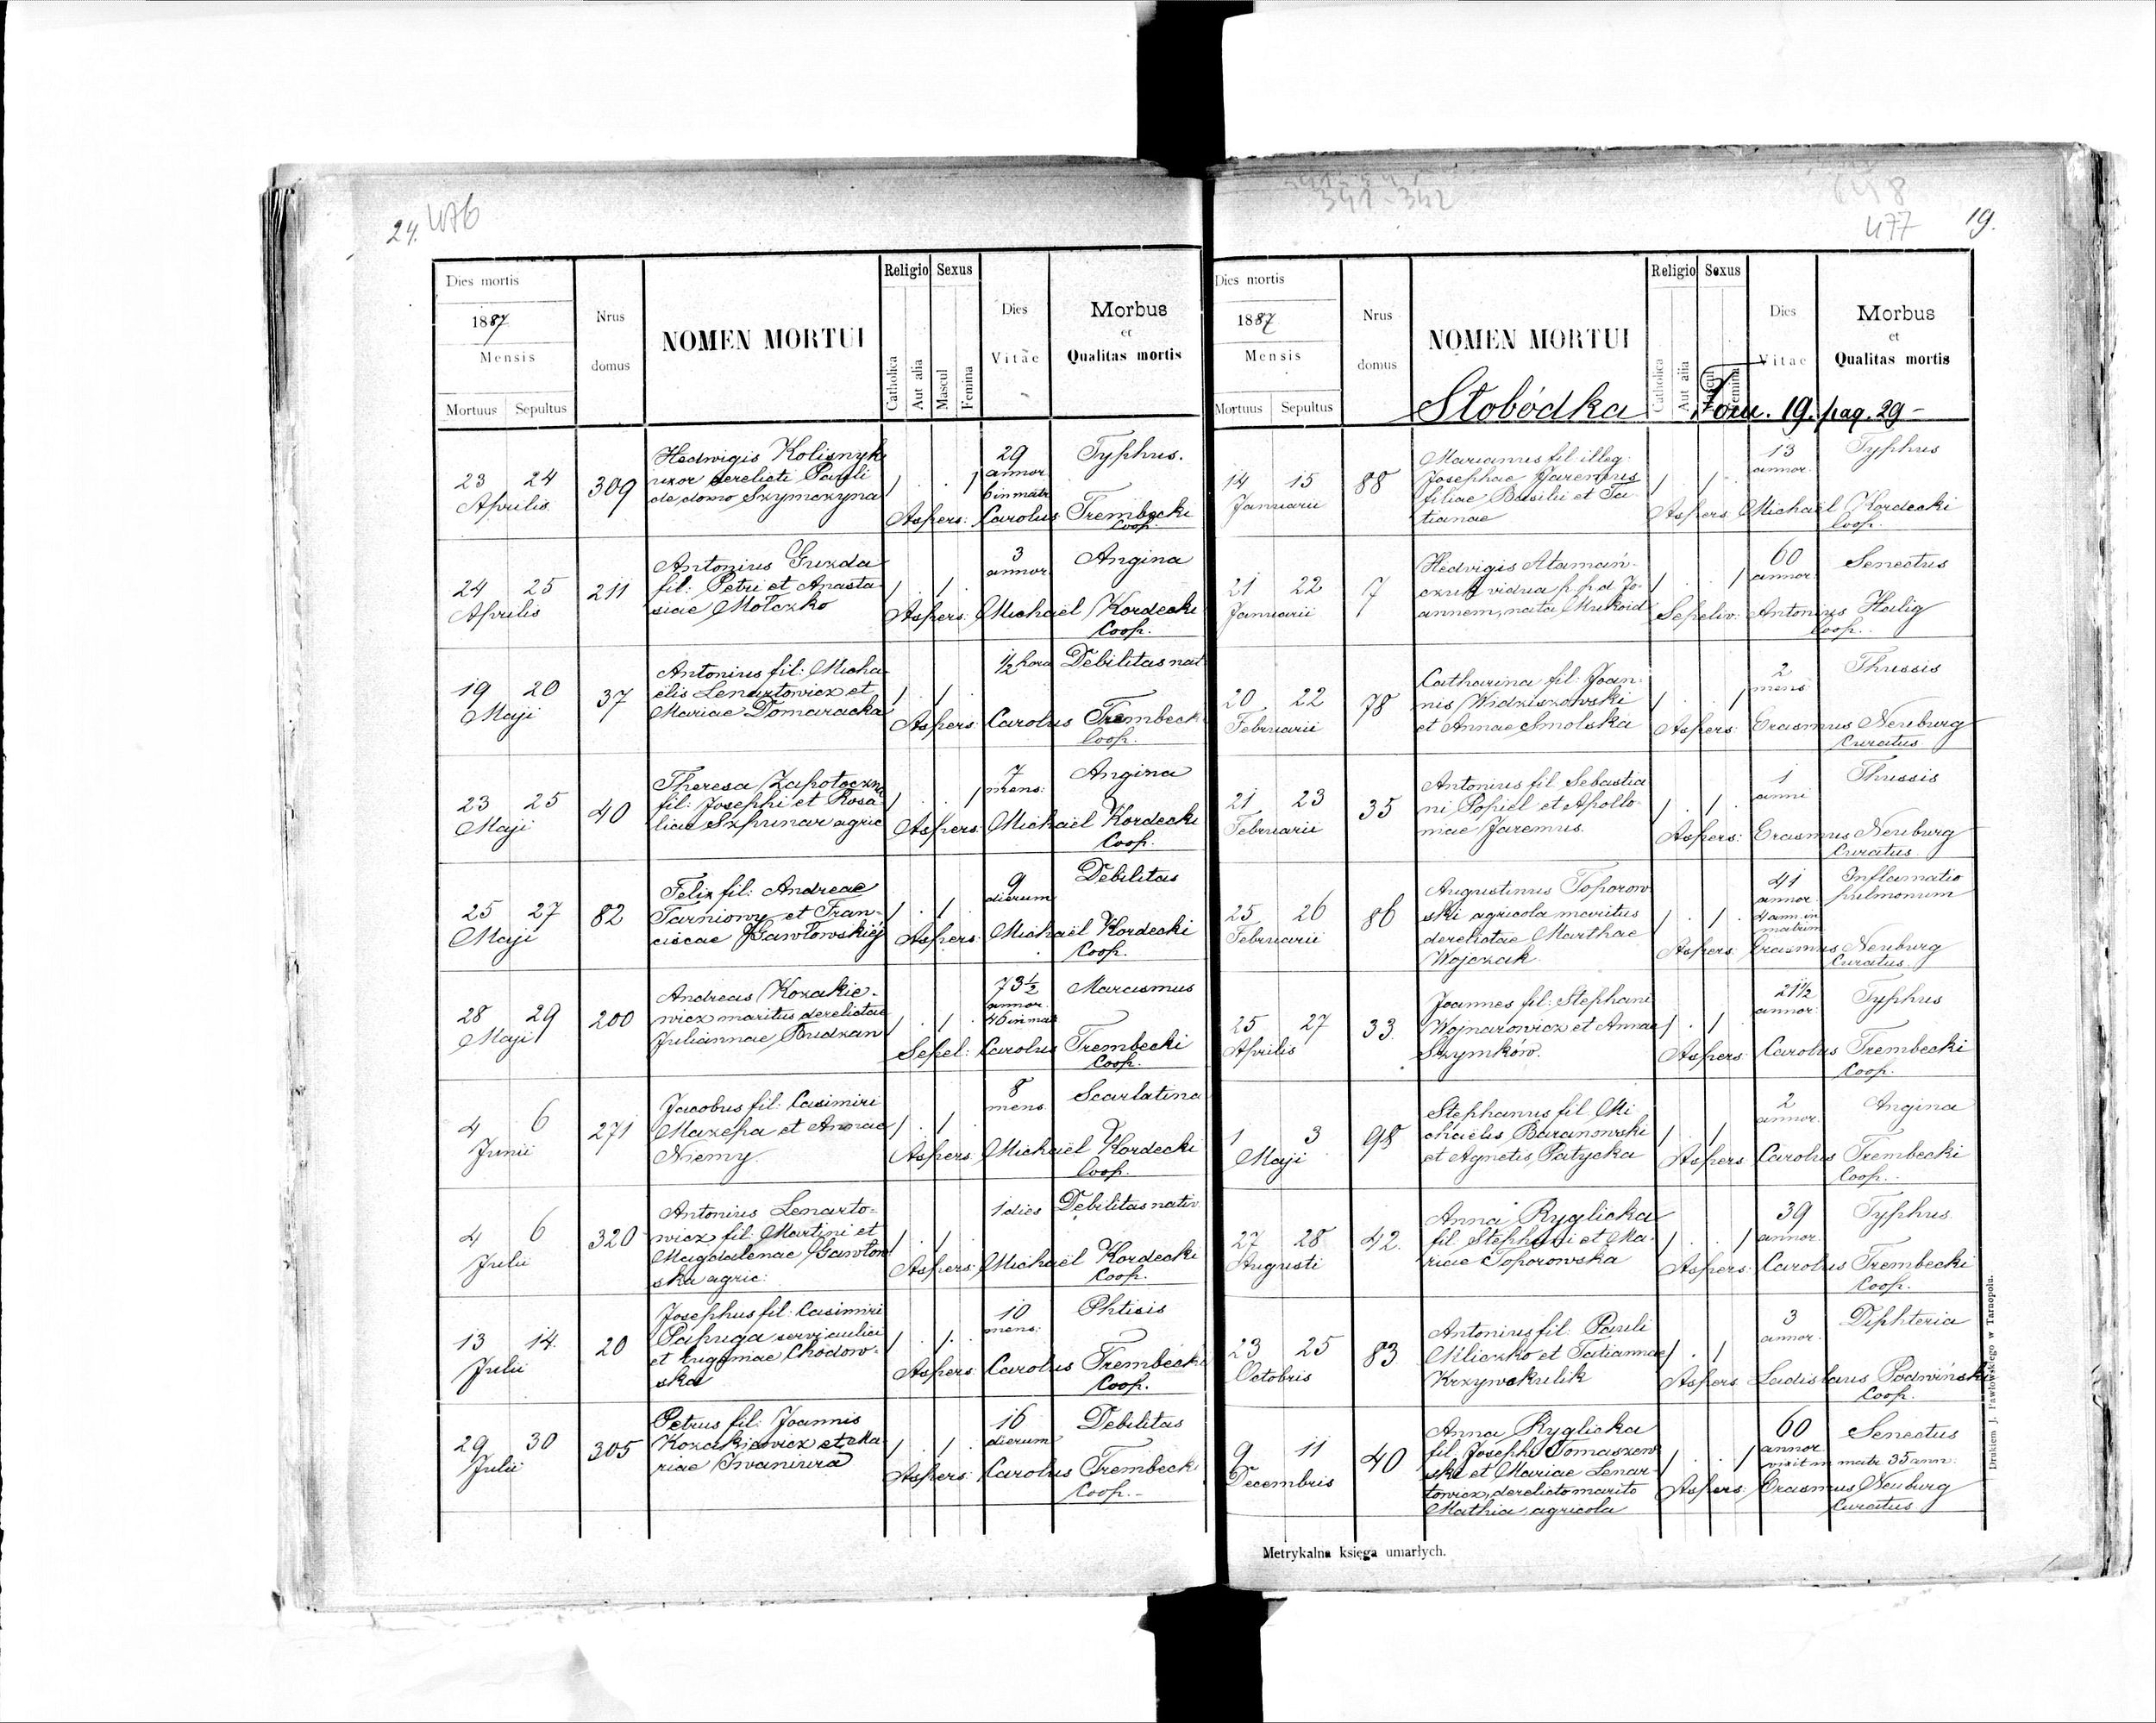 24. 476
Dies mortis
1887
Mensis
Mortuus Sepultus
Nrus
domus
NOMEN MORTUI
Religio Sexus
Catholica
Aut alia
Mascul
Femina
Dies
Vitae
Morbus
et
Qualitas mortis
23 24
Aprilis
309
Hedwigis Kolisnyk
uxor derelicti Pauli
de domo Szymczyna
29
annor.
6 in matr
Typhus.
Aspers: Carolus Trembecki
Coop.
24 25
Aprilis
211
Antonius Guzda
fil: Petri et Anasta
siae Mołczko
3
annor.
Angina
Aspers: Michaël Kordecki
Coop.
19 20
Maji
37
Antonius fil: Micha
ëlis Lenartowicz et
Mariae Domaracka
1/2 hora
Debilitas nat
Aspers: Carolus Trembecki
Coop.
23 25
Maji
40
Theresa Zapotoczna
fil: Josephi et Rosa
liae Szpunar agric
7
mens:
Angina
Aspers: Michaël Kordecki
Coop.
25 27
Maji
82
Felix fil: Andreae
Tarniowy et Fran-
ciscae Gawłowskiéj
9
dierum
Debilitas
Aspers: Michaël Kordecki
Coop.
28 29
Maji
200
Andreas Kozakie-
wicz maritus derelictae
Juliannae Budzan
73 1/2
annor.
46 in mat
Marasmus
Sepel: Carolus Trembecki
Coop.
4 6
Junii
271
Jacobus fil: Casimiri
Mazepa et Annae
Niemy
8
mens
Scarlatina
Aspers: Michaël Kordecki
Coop.
4 6
Julii
320
Antonius Lenarto-
wicz fil: Martini et
Magdalenae Gawłow
ska agric:
1 dies
Debilitas nativ.
Aspers: Michaël Kordecki
Coop.
13 14.
Julii
20
Josephus fil: Casimiri
Papuga servi aulici
et Eugeniae Chodow-
ska
10
mens:
Phtisis
Aspers: Carolus Trembecki
Coop.
29 30
Julii
305
Petrus fil: Joannis
Kozakiewicz et Ma
riae Iwaniura
16
dierum
Debilitas
Aspers: Carolus Trembecki
Coop.-
341-342
477 19.
Dies mortis
1887
Mensis
Mortuus Sepultus
Nrus
domus
NOMEN MORTUI
Słobódka
Religio Sexus
Catholica
Aut alia
Mascul
Femina
Dies
Vitae
Morbus
et
Qualitas mortis
Tom. 19. pag. 29-
14 15
Januarii
88
Marianus fil illeg:
Josephae Jaremus
filiae Basilii et Ta
tianae
13
annor.
Typhus
Aspers Michaël Kordecki
Coop.
21 22
Januarii
7
Hedvigis Atamań-
czuk vidua p. p. d. Jo-
annem, nata Mukoid
60
annor.
Senectus
Sepeliv: Antonius Halig
Coop.
20 22
Februarii
78
Catharina fil: Joan-
nis Widziszowski
et Annae Smolska
2
mens
Thussis
Aspers: Erasmus Neuburg
Curatus
21 23
Februarii
35
Antonius fil Sebastia
ni Popiel et Apollo-
niae Jaremus.
1
anni
Thussis
Aspers: Erasmus Neuburg
Curatus
25 26
Februarii
86
Augustinus Toporow
ski agricola maritus
derelictae Marthae
Wojczak
41
annor.
4 ann. in
matrim
Inflamatio
pulmonum
Aspers Erasmus Neuburg
Curatus.
25 27
Aprilis
33.
Joannes fil: Stephani
Wojnarowicz et Annae
Szymków.
21 1/2
annor.
Typhus
Aspers Carolus Trembecki
Coop.
1 3
Maji
98
Stephanus fil. Mi
chaelis Baranowski
et Agnetis Patycka
2
annor.
Angina
Aspers Carolus Trembecki
Coop.
27 28
Augusti
42.
Anna Ryglicka
fil. Stephani et Ma-
riae Toporowska
39
annor.
Typhus
Aspers: Carolus Trembecki
Coop.
23 25
Octobris
83
Antonius fil: Pauli
Kliczko et Tatiannae
Krzywokulik
3
annor.
Diphteria
Aspers Ladislaus Podwiński
Coop.
9 11
Decembris
40
Anna Ryglicka
fil. Josephi Tomaszew
ski et Mariae Lenar-
towicz, derelicto marito
Mathia, agricola
60
annor
vixit in matr 35 ann.
Senectus
Aspers: Erasmus Neuburg
Curatus
Metrykalna księga umarłych.
Drukiem J. Pawłowskiego w Tarnopolu.